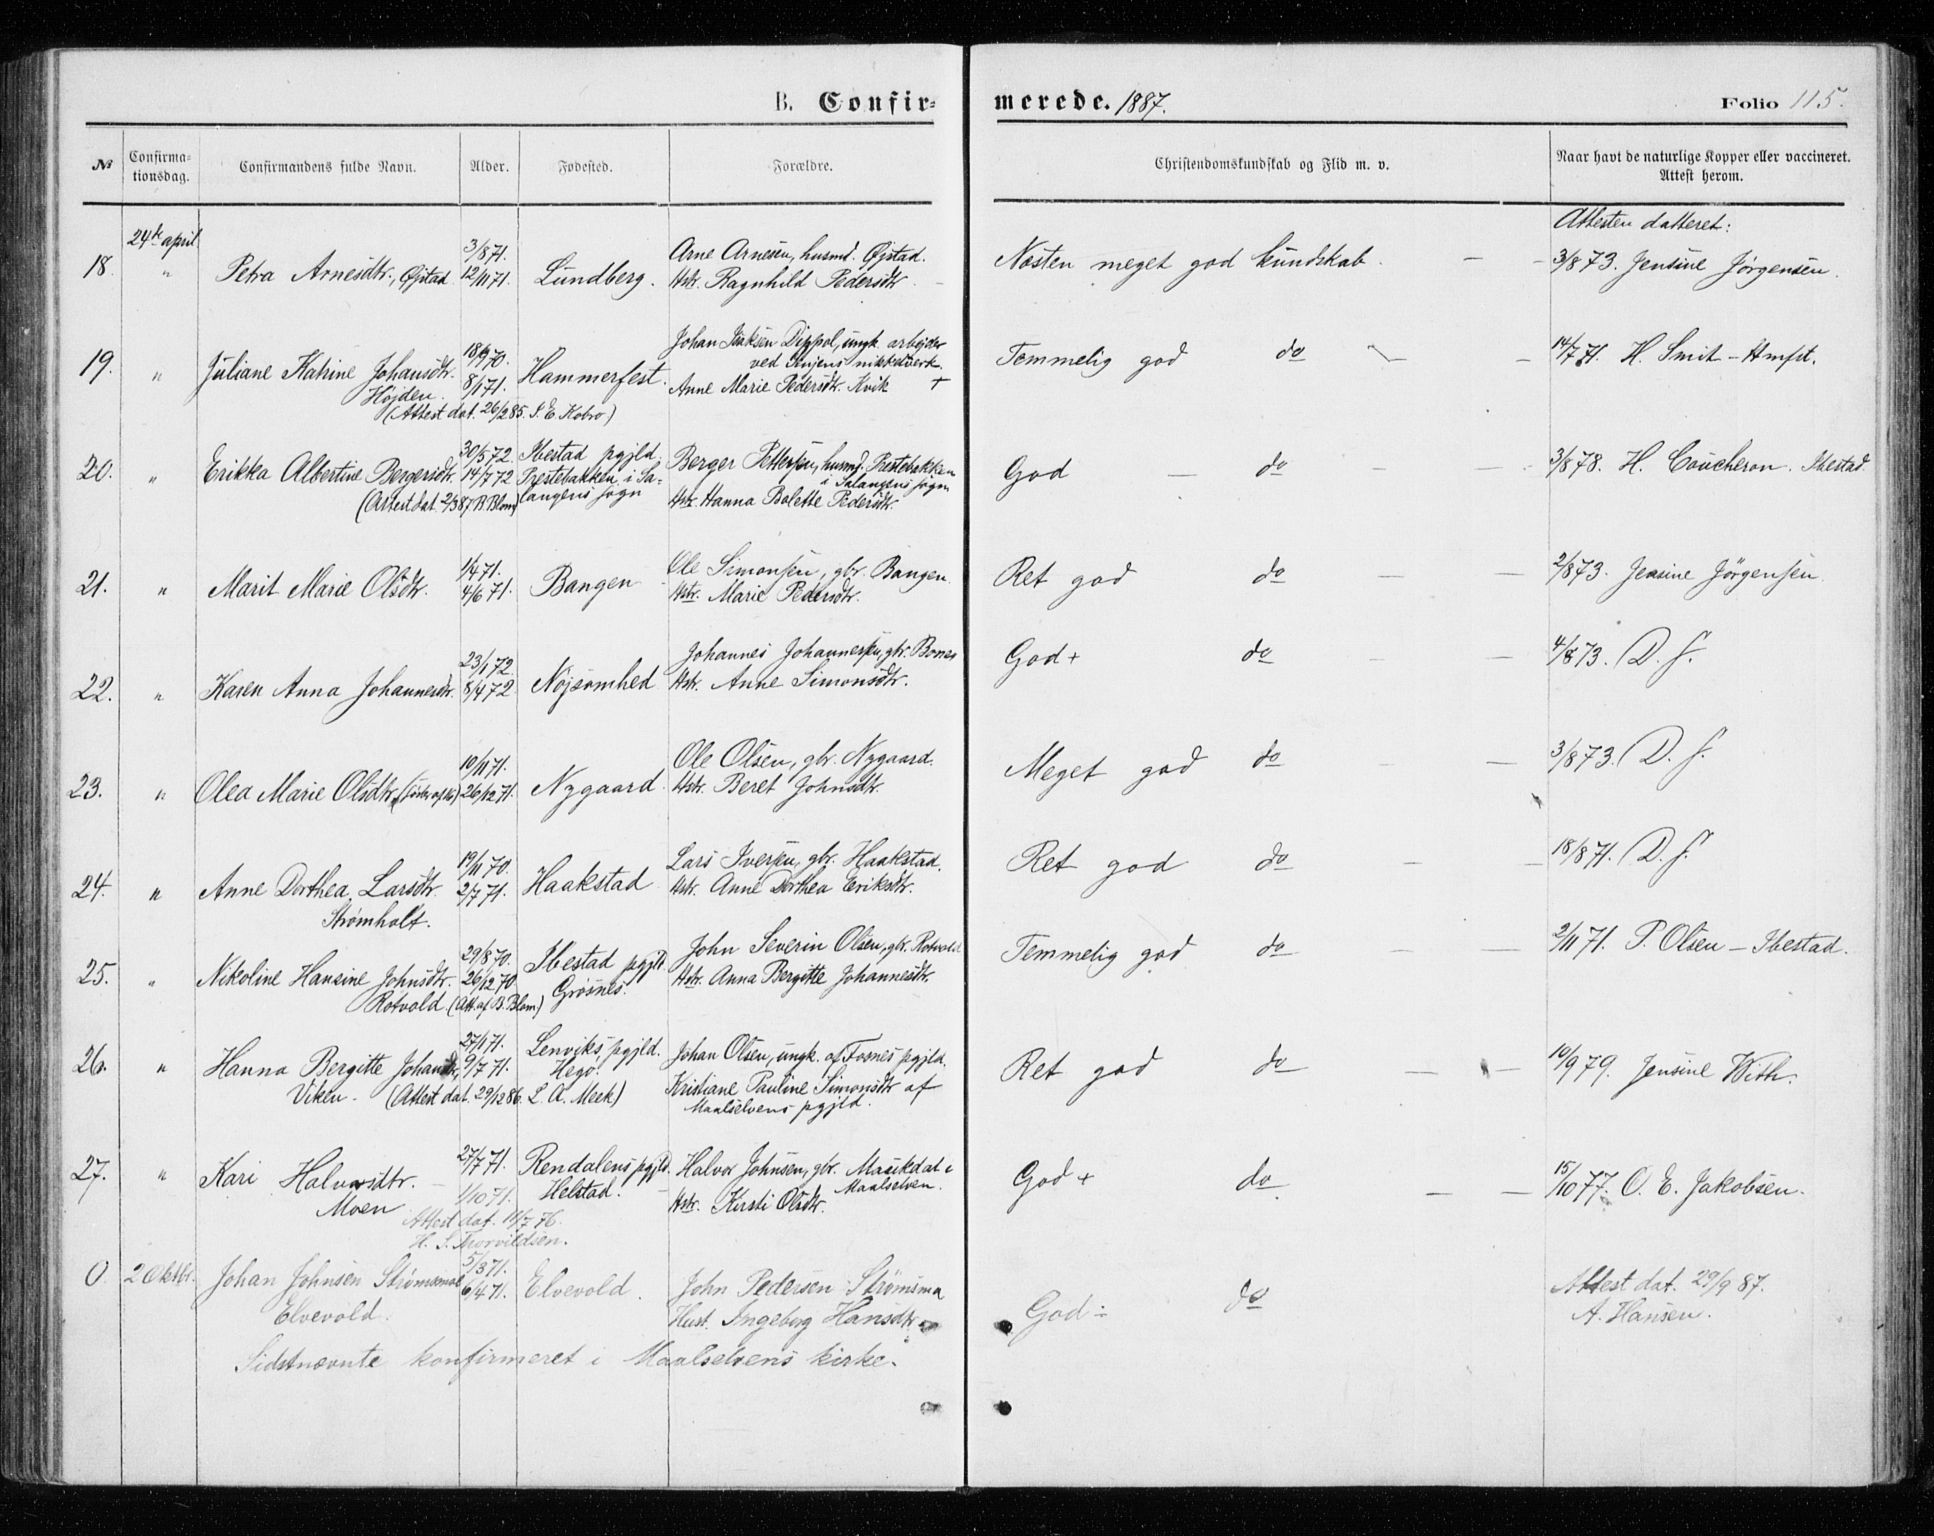 B. Confir=
merede. 1887.
Folio 115.
№
Confirma=
tionsdag.
Confirmandens fulde Navn.
Alder.
Fødested.
Forældre.
Christendomskundskab og Flid m. v.
Naar havt de naturlige Kopper eller vaccineret.
Attest herom.
Attesten datteret:
24de april
18. " Petra Arnesdtr., Øjstad 3/8 71. 12/11 71. Lundberg.
Arne Arnesen, husmd. Øjstad.
Hstr. Ragnhild Pedersdtr.
Næsten meget god kundskab. — — 3/8 73. Jensine Jørgensen.
19. " Juliane Katrine Johansdtr. Højden. 18/9 70. 8/1 71. Hammerfest.
(Attest dat. 26/2 85. S. E. Kobro)
Johan Isaksen Dippol, ungk. arbejder
ved Sinjens nikkelverk.
Anne Marie Pedersdtr. Kvik +
Temmelig god do — — 14/7 71. H. Smit – Hmfst.
20. " Erikka Albertine Bergersdtr. 30/5 72. 14/7 72 Ibestad pgjld.
Prestebakken i Sa-
langens sogn
(Attest dat. 2/3 87 B. Blom)
Berger Pettersen, husmd. Prestebakken
i Salangens sogn
Hstr. Hanna Bolette Pedersdtr.
God — do — — 3/8 78. H. Coucheron. Ibestad
21. " Marit Marie Olsdtr. 1/4 71. 4/6 71. Bangen
Ole Simonsen, gbr. Bangen.
Hstr. Marie Pedersdtr.
Ret god do — — 2/8 73. Jensine Jörgensen
22. " Karen Anna Johannesdtr. 23/1 72. 8/4 72 Nøjsomhed
Johannes Johannessen, gbr. Bones
Hstr. Anne Simonsdtr.
God + do — — 4/8 73. D. S.
23. " Olea Marie Olsdtr. 10/11 71. 26/12 71. Nygaard
Ole Olsen, gbr. Nygaard.
Hstr. Beret Johnsdtr.
Meget god do — — 3/8 73. D. S.
24. " Anne Dorthea Larsdtr. 19/11 70. 2/7 71. Haakstad
Strømholt.
Lars Iversen, gbr. Haakstad.
Hstr. Anne Dorthea Eriksdtr.
Ret god do — — 18/8 71. D. S.
25. " Nikoline Hansine Johnsdtr. 29/8 70. 26/12 70. Ibestad pgjld.
Rotvold. (Att. af B. Blom) Grøsnes.
John Severin Olsen, gbr. Rotvold
Hstr. Anna Bergitte Johannesdtr.
Temmelig god do — — 2/11 71. P. Olsen – Ibestad.
26. " Hanna Bergitte Johansdtr., 27/1 71. 9/7 71. Lenviks pgjld.
Hegö.
Viken – (Attest dat. 29/12 86. L. A. Meek)
Johan Olsen, ungk. af Fosnes pgjld.
Kristiane Pauline Simonsdtr af
Maalselvens pgjld.
Ret god do — — 10/9 79. Jensine With.
27. " Kari Halvorsdtr. 27/7 71. 1/10 71. Rendalens pgjld.
Moen Helstad. —
Attest dat. 11/7 76.
H. S. Thorvildsen.
Halvor Johnsen, gbr. Maukdal i
Maalselven.
Hstr. Kirsti Olsdtr.
God + do — — 15/10 77. O. E. Jakobsen.
0 2 Oktbr. Johan Johnsen Strømsmoe 5/3 71. 6/4 71. Elvevold.
Elvevold.
John Pedersen Strømsmo
Hust. Ingeborg Hansdtr
God ÷ do Attest dat. 29/9 87.
A. Hansen.
Sidstnævnte konfirmeret i Maalselvens kirke.